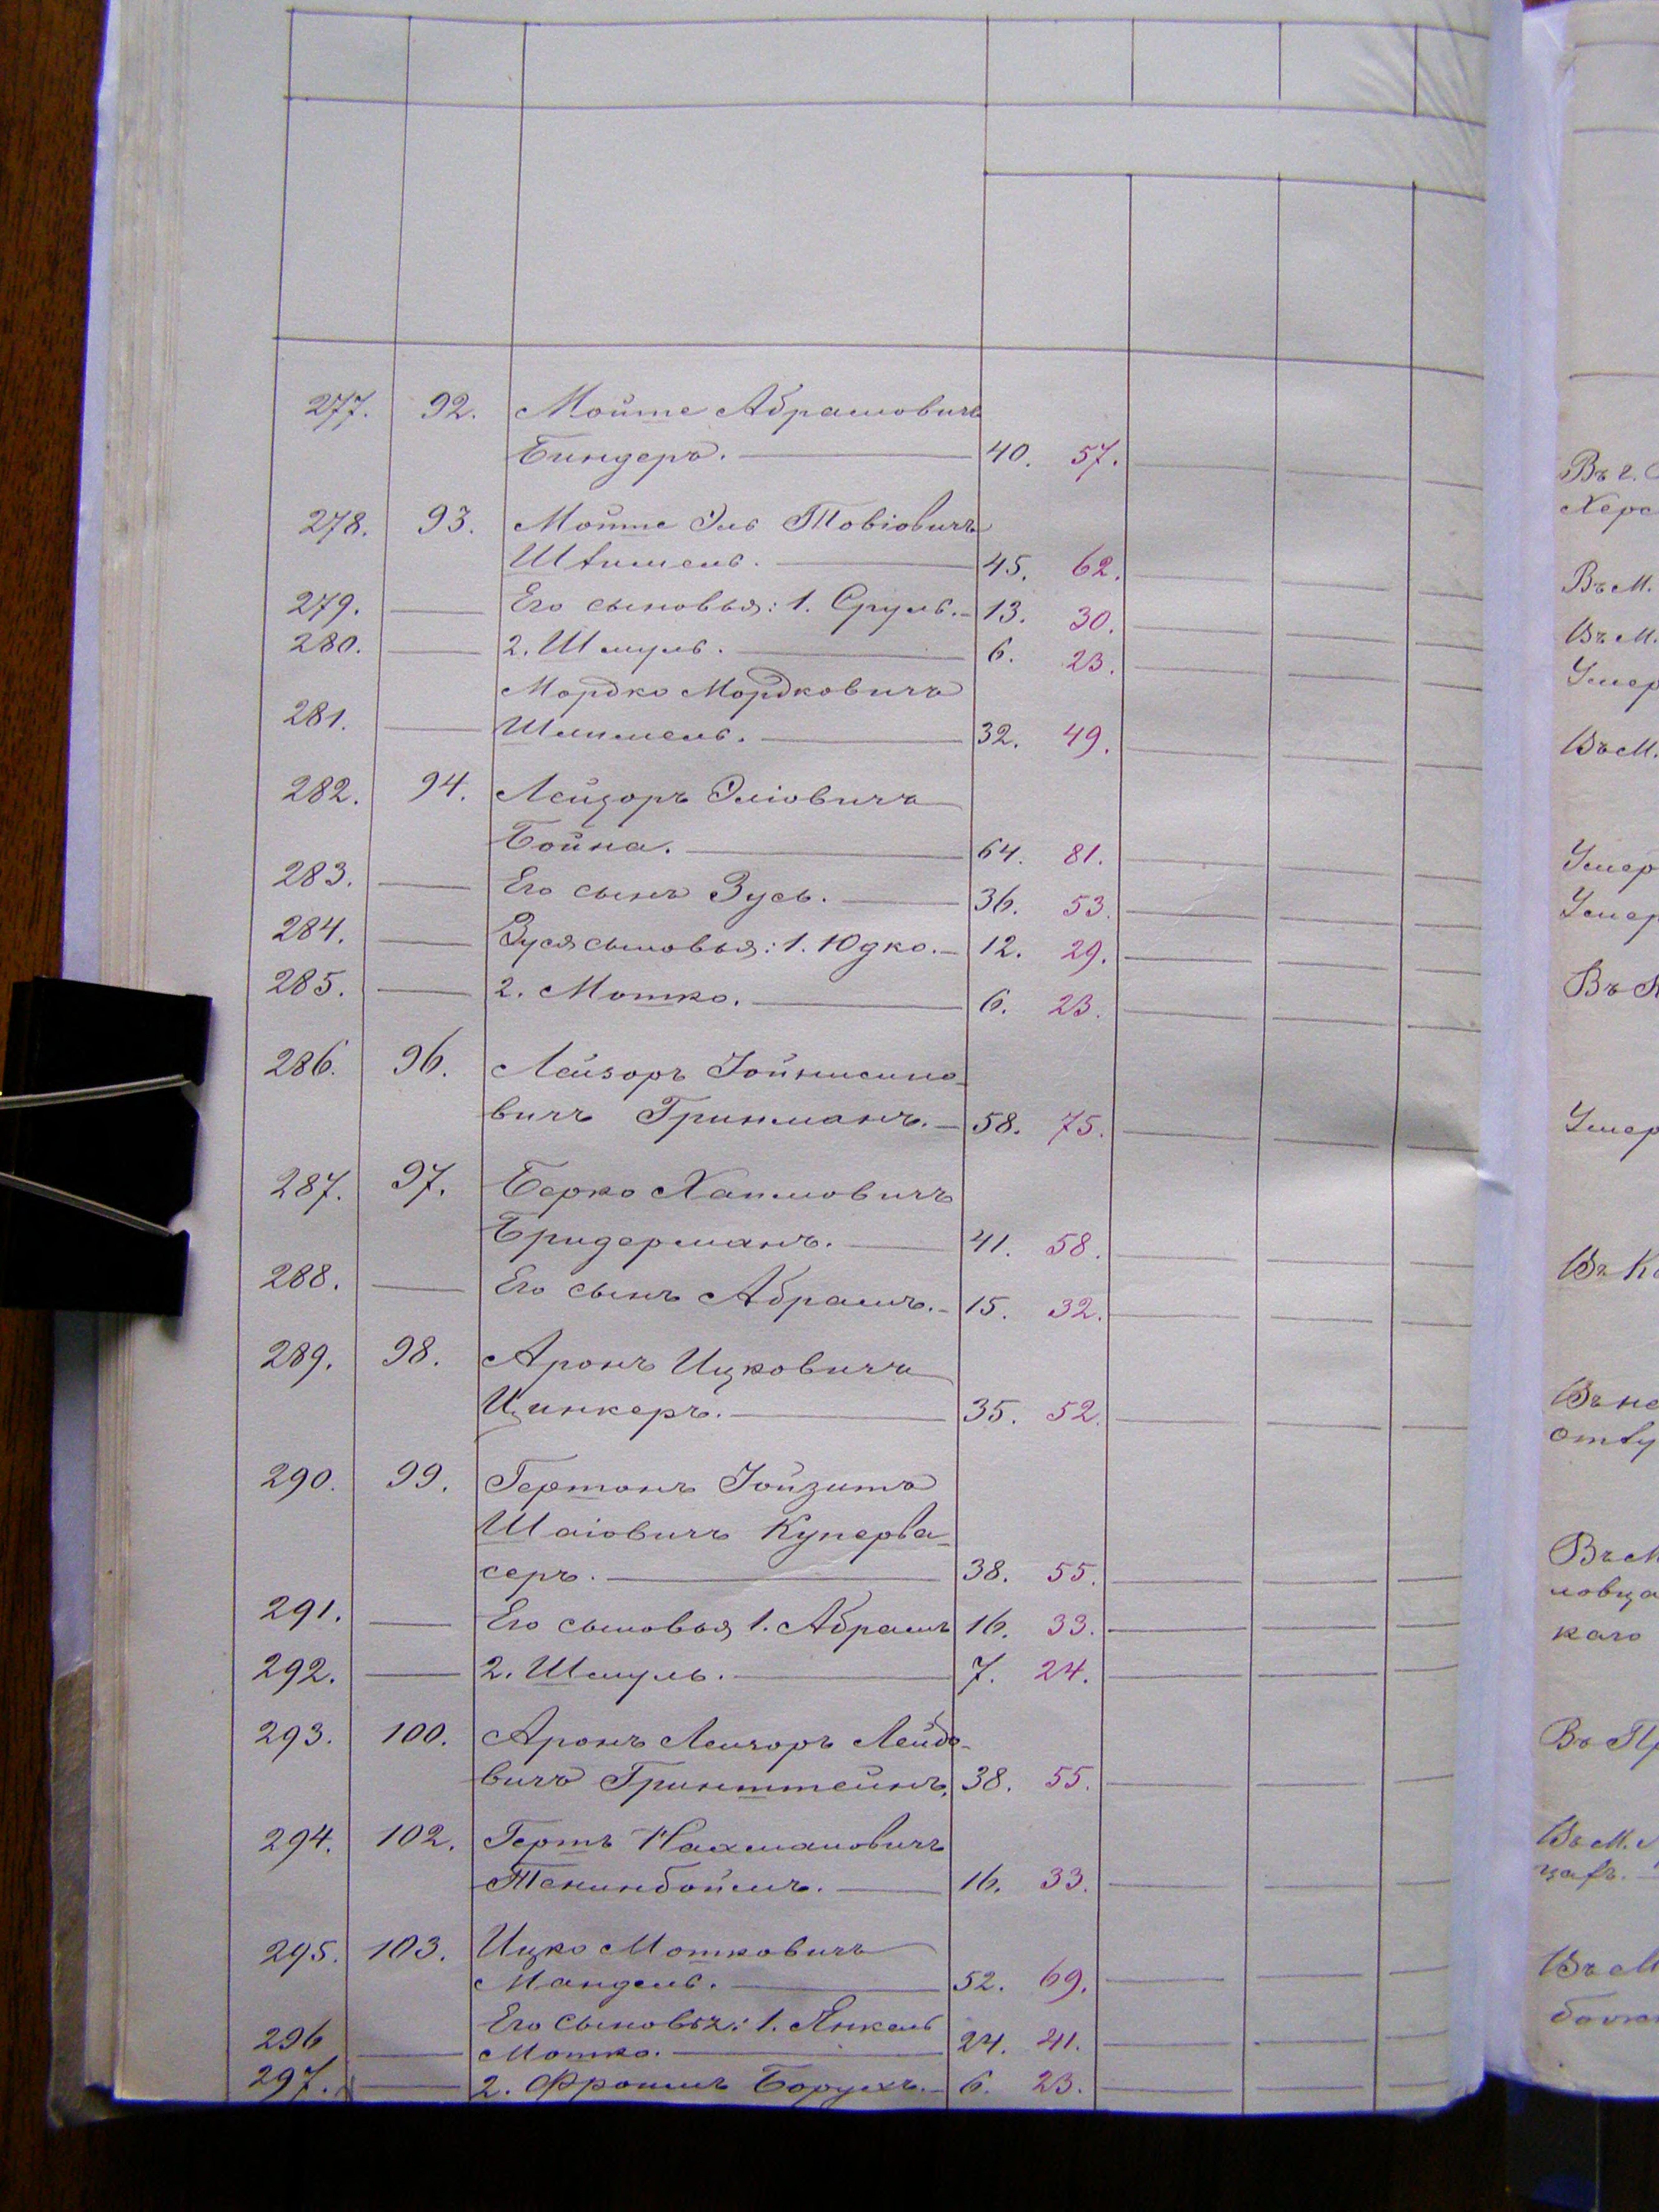 277. 92. Мойше Абрамовичъ
Биндеръ. 40. 57.
278. 93. Мойше Эль Товіовичъ
Штимель. 45. 62.
279. Его сыновья: 1. Сруль. 13. 30.
280. 2. Шмуль. 6. 23.
Мордко Мордковичъ
281. Шмимель. 32. 49.
282. 94. Лейзоръ Эліовичъ
Бойна. 64. 81.
283. Его сынъ Зусь. 36. 53.
284. Зуся сыновья: 1. Юдко. 12. 29.
285. 2. Мошко. 6. 23.
286. 96. Лейзоръ
вичъ Гринманъ. 58. 75.
287. 97. Берко Хаимовичъ
Бридерманъ. 41. 58.
288. Его сынъ Абрамъ. 15. 32.
289. 98. Аронъ Ицковичъ
Цинкеръ. 35. 52.
290. 99. Гершонъ
Шаіовичъ Куперва-
серъ. 38. 55.
291. Его сыновья 1. Абрамъ 16. 33.
292. 2. Шмуль. 7. 24.
293. 100. Аронъ Лейзоръ Лейбо-
вичъ Гринштейнъ. 38. 55.
294. 102. Гершъ Нахмановичъ
Тенинбоймъ. 16. 33.
295. 103. Ицко Мошковичъ
Мандель. 52. 69.
296 Его сыновья: 1. Янкель
Мошко. 24. 41.
297. 2. Фроимъ Борухъ. 6. 23.
Въ г.
Херс
Въ М.
Въ М.
Умер
Въ М.
Умер
Умер
Въ
Умер
Въ К
Въ не
отлу
Въ М
ловца
каго
Въ Пр
Въ М.
Въ М